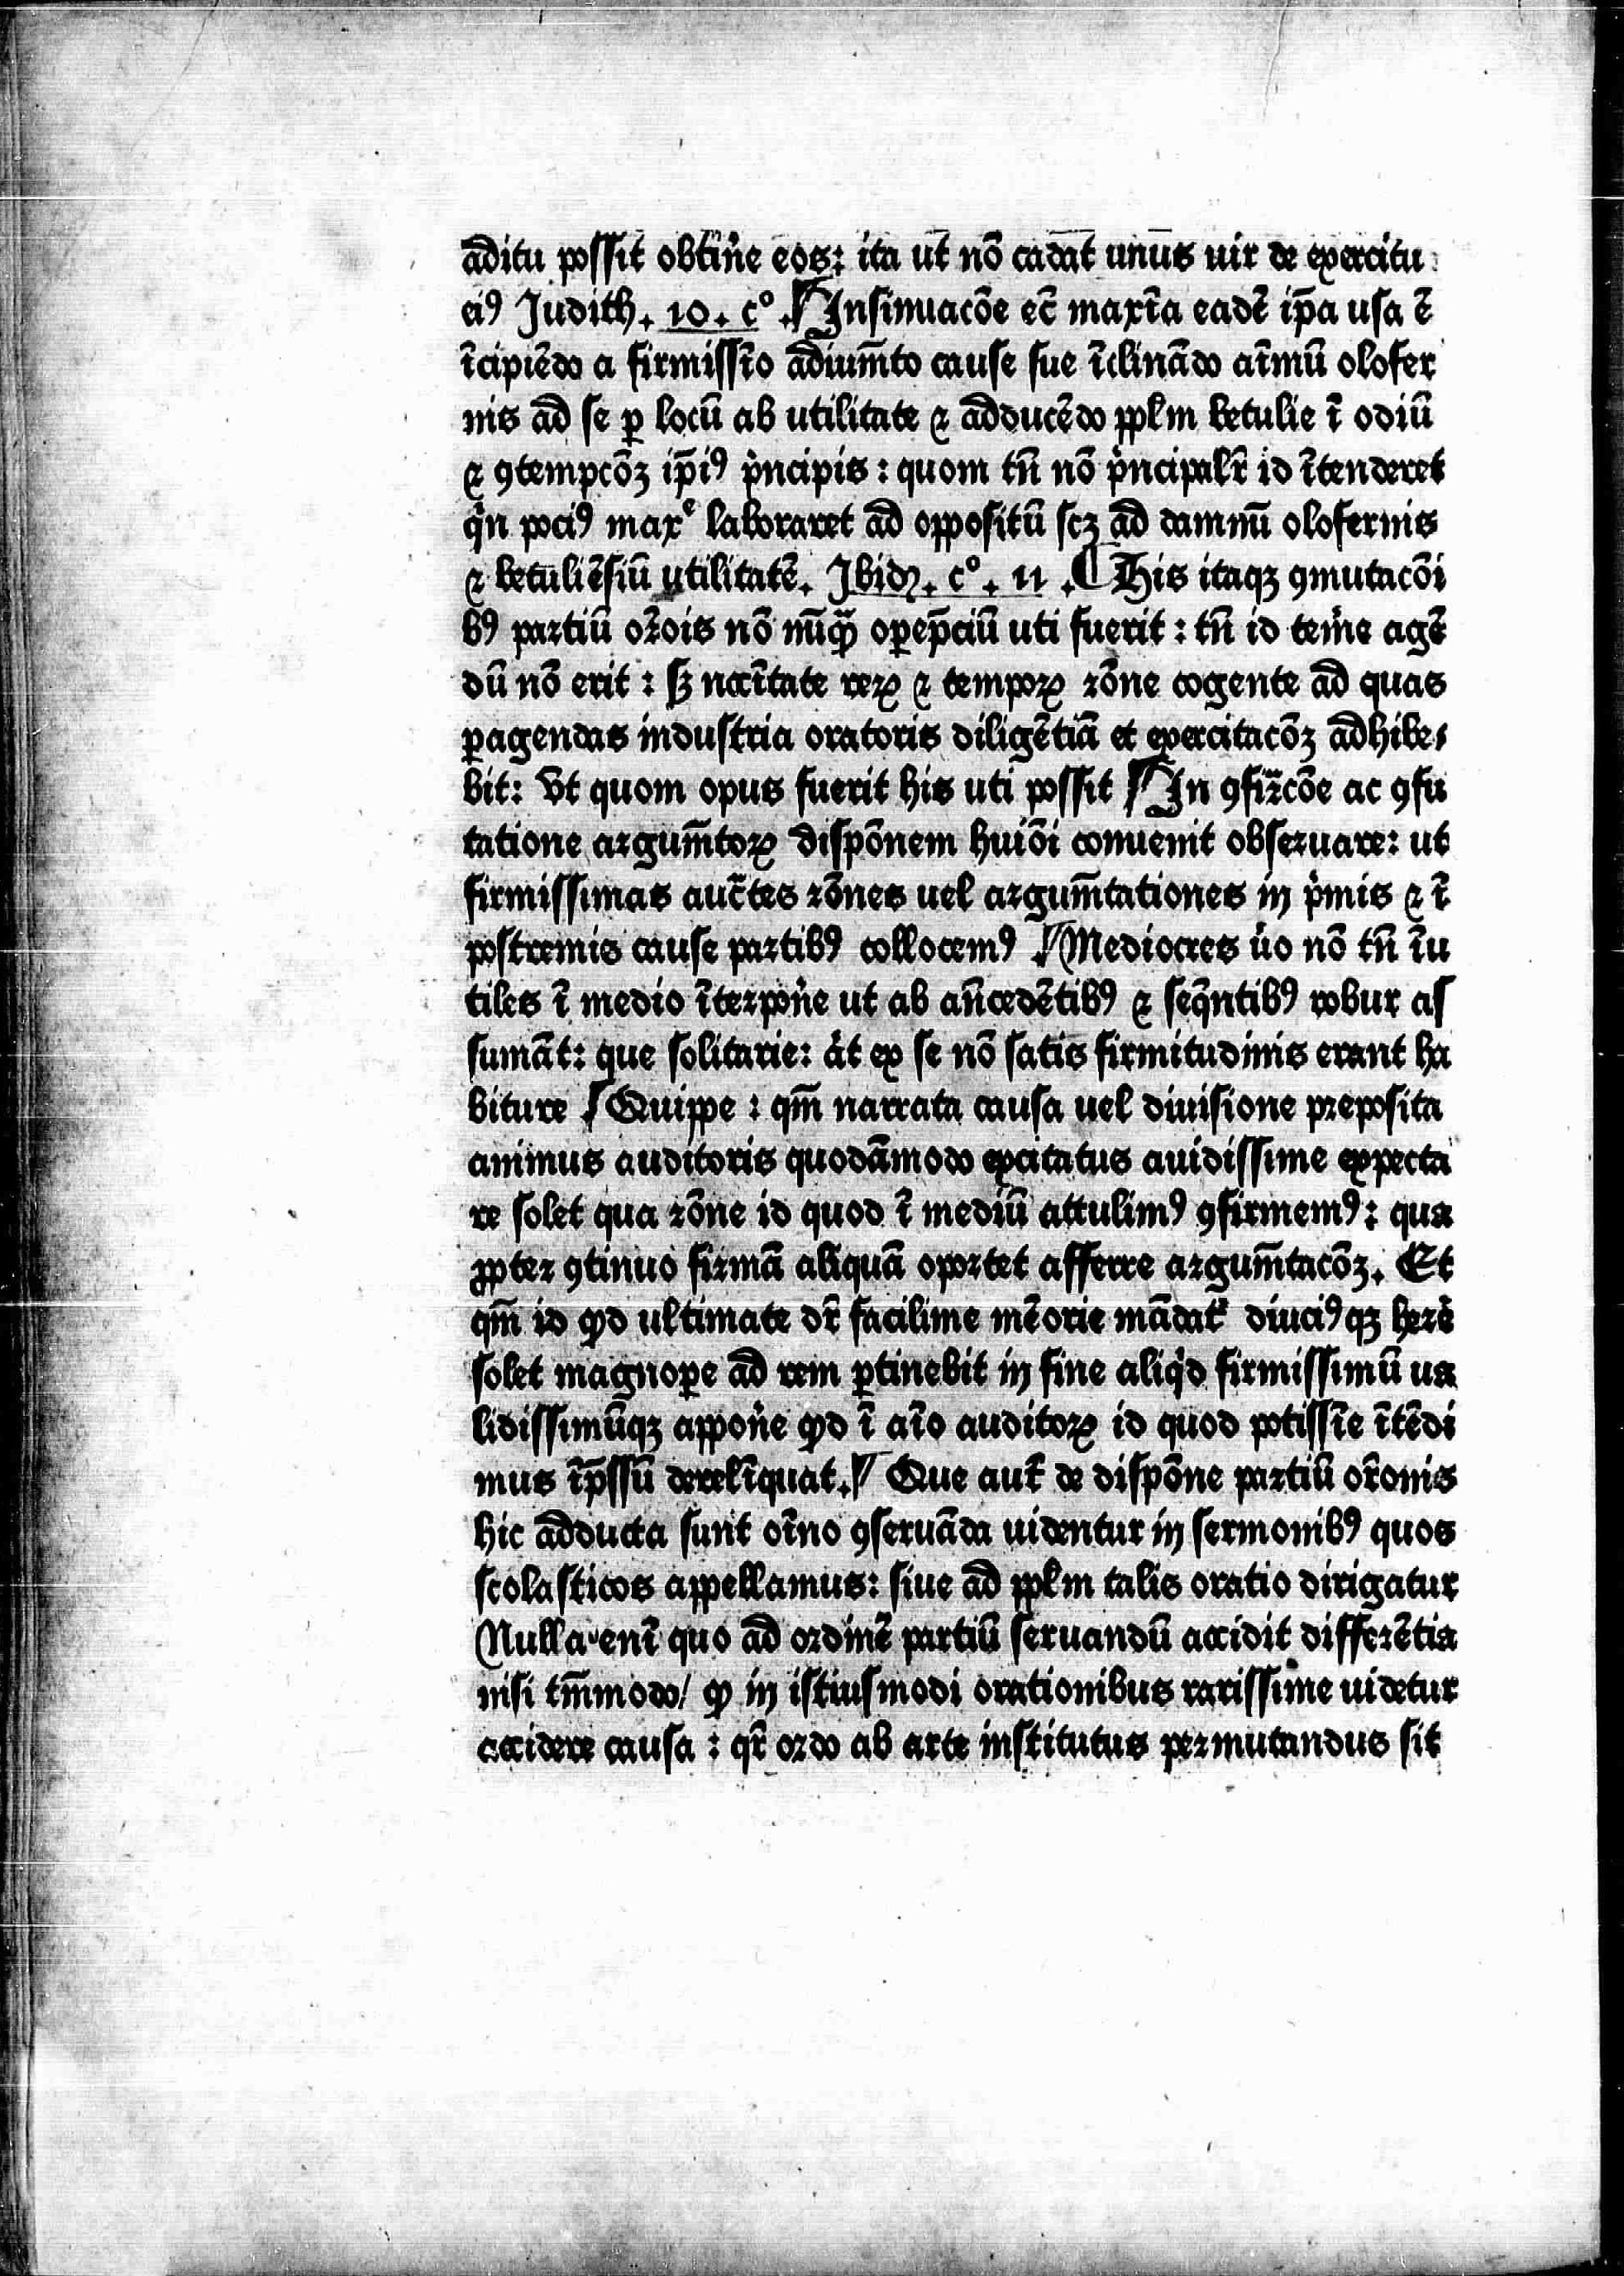 aditu possit obtin̉e eos: ita ut nō cadat unus uir de exercitu
eiꝰ Judith. 10. c°. Insinuacōe ec̄ maxīa eadē ip̄a usa ē
īcipiēdo a firmissīo adium̄to cause sue īclinādo aīmū olofer
nis ad se ꝑ locū ab utilitate ⁊ adducēdo pplm̄ betulie ī odiū
⁊ ꝯtempcōꝫ ip̄iꝰ p̉ncipis: quom tn̄ nō p̉ncipalr̄ id ītenderet
q̉n pociꝰ maxᵉ laboraret ad oppositū scꝫ ad damnū olofernis
⁊ betuliēsiū utilitatē. Ibidꝫ. c°. 11. ¶ His itaqꝫ ꝯmutacōi
bꝰ partiū or̄ois nō nūꝙ̄ oꝑep̄ciū uti fuerit: tn̄ id tem̉e agē
dū nō erit: sꝫ nccītate reꝝ ⁊ tempoꝝ rōne cogente ad quas
ꝑagendas industria oratoris diligētiā et exercitacōꝫ adhibe⸗
bit: Vt quom opus fuerit his uti possit In ꝯfir̄cōe ac ꝯfu
tatione argum̄toꝝ dispōnem huiōi conuenit obseruare: ut
firmissimas auc̄tes rōnes uel argum̄tationes in p̉mis ⁊ ī
postremis cause partibꝰ collocemꝰ Mediocres ủo nō tn̄ īu
tiles ī medio īterpon̉e ut ab an̄cedētibꝰ ⁊ seq̄ntibꝰ robur as
sumāt: que solitarie: at ex se nō satis firmitudinis erant ha
biture Quippe: qm̄ narrata causa uel diuisione preposita
animus auditoris quodāmodo excitatus auidissime expecta
re solet qua rōne id quod ī mediū attulimꝰ ꝯfirmemꝰ: qua
ꝓpter ꝯtinuo firmā aliquā oportet afferre argum̄tacōꝫ. Et
qm̄ id ꝙd ultimate dr̄ facilime mēorie mādat᷑ diuciꝰqꝫ herē
solet magnoꝑe ad rem ꝑtinebit in fine aliq̉d firmissimū ua
lidissimūqꝫ appon̉e ꝙd ī aīo auditoꝝ id quod potissīe ītēdi
mus īp̄ssū derelīquat. Que aut̄ de dispōne partiū or̄onis
hic adducta sunt oīno ꝯseruāda uidentur in sermonibꝰ quos
scolasticos appellamus: siue ad pplm̄ talis oratio dirigatur
Nulla enī quo ad ordinē partiū seruandū accidit differētia
nisi tm̄modo/ ꝙ in istiusmodi orationibus rarissime uidetur
accidere causa: qr̄ ordo ab arte institutus permutandus sit